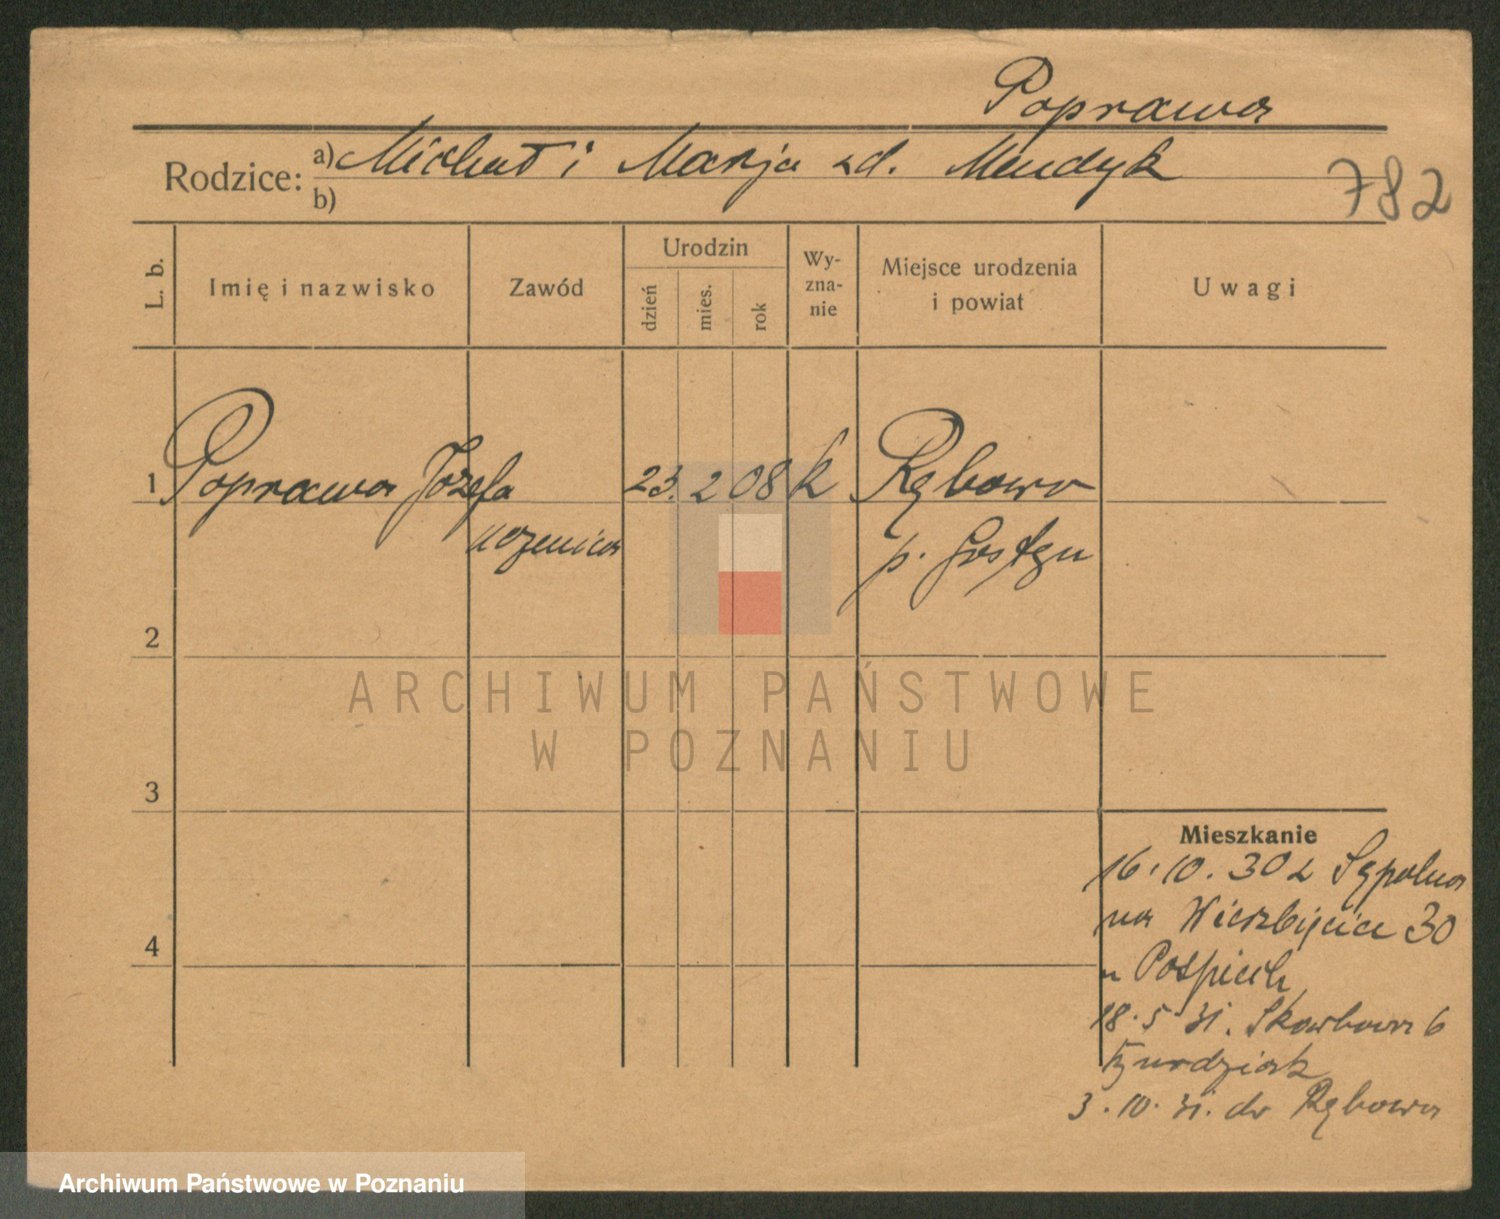 Poprawa
Rodzice: a) Michał i Marja zd. Mendyk
b)
782
L. b.
Imię i nazwisko
Zawód
Urodzin
dzień
mies.
rok
Wy-
zna-
nie
Miejsce urodzenia
i powiat
Uwagi
1 Poprawa Józefa 23. 2 08 k Rębowo
uczenica p. Gostyn
2
ARCHIWUM PAŃSTWOWE
W POZNANIU
3
Mieszkanie
16.10.30 z Sępolna
na Wierzbięcice 30
u Pospiech
4
18.5.31. Skarbowa 6
3.10.31. do Rębowa
Archiwum Państwowe w Poznaniu